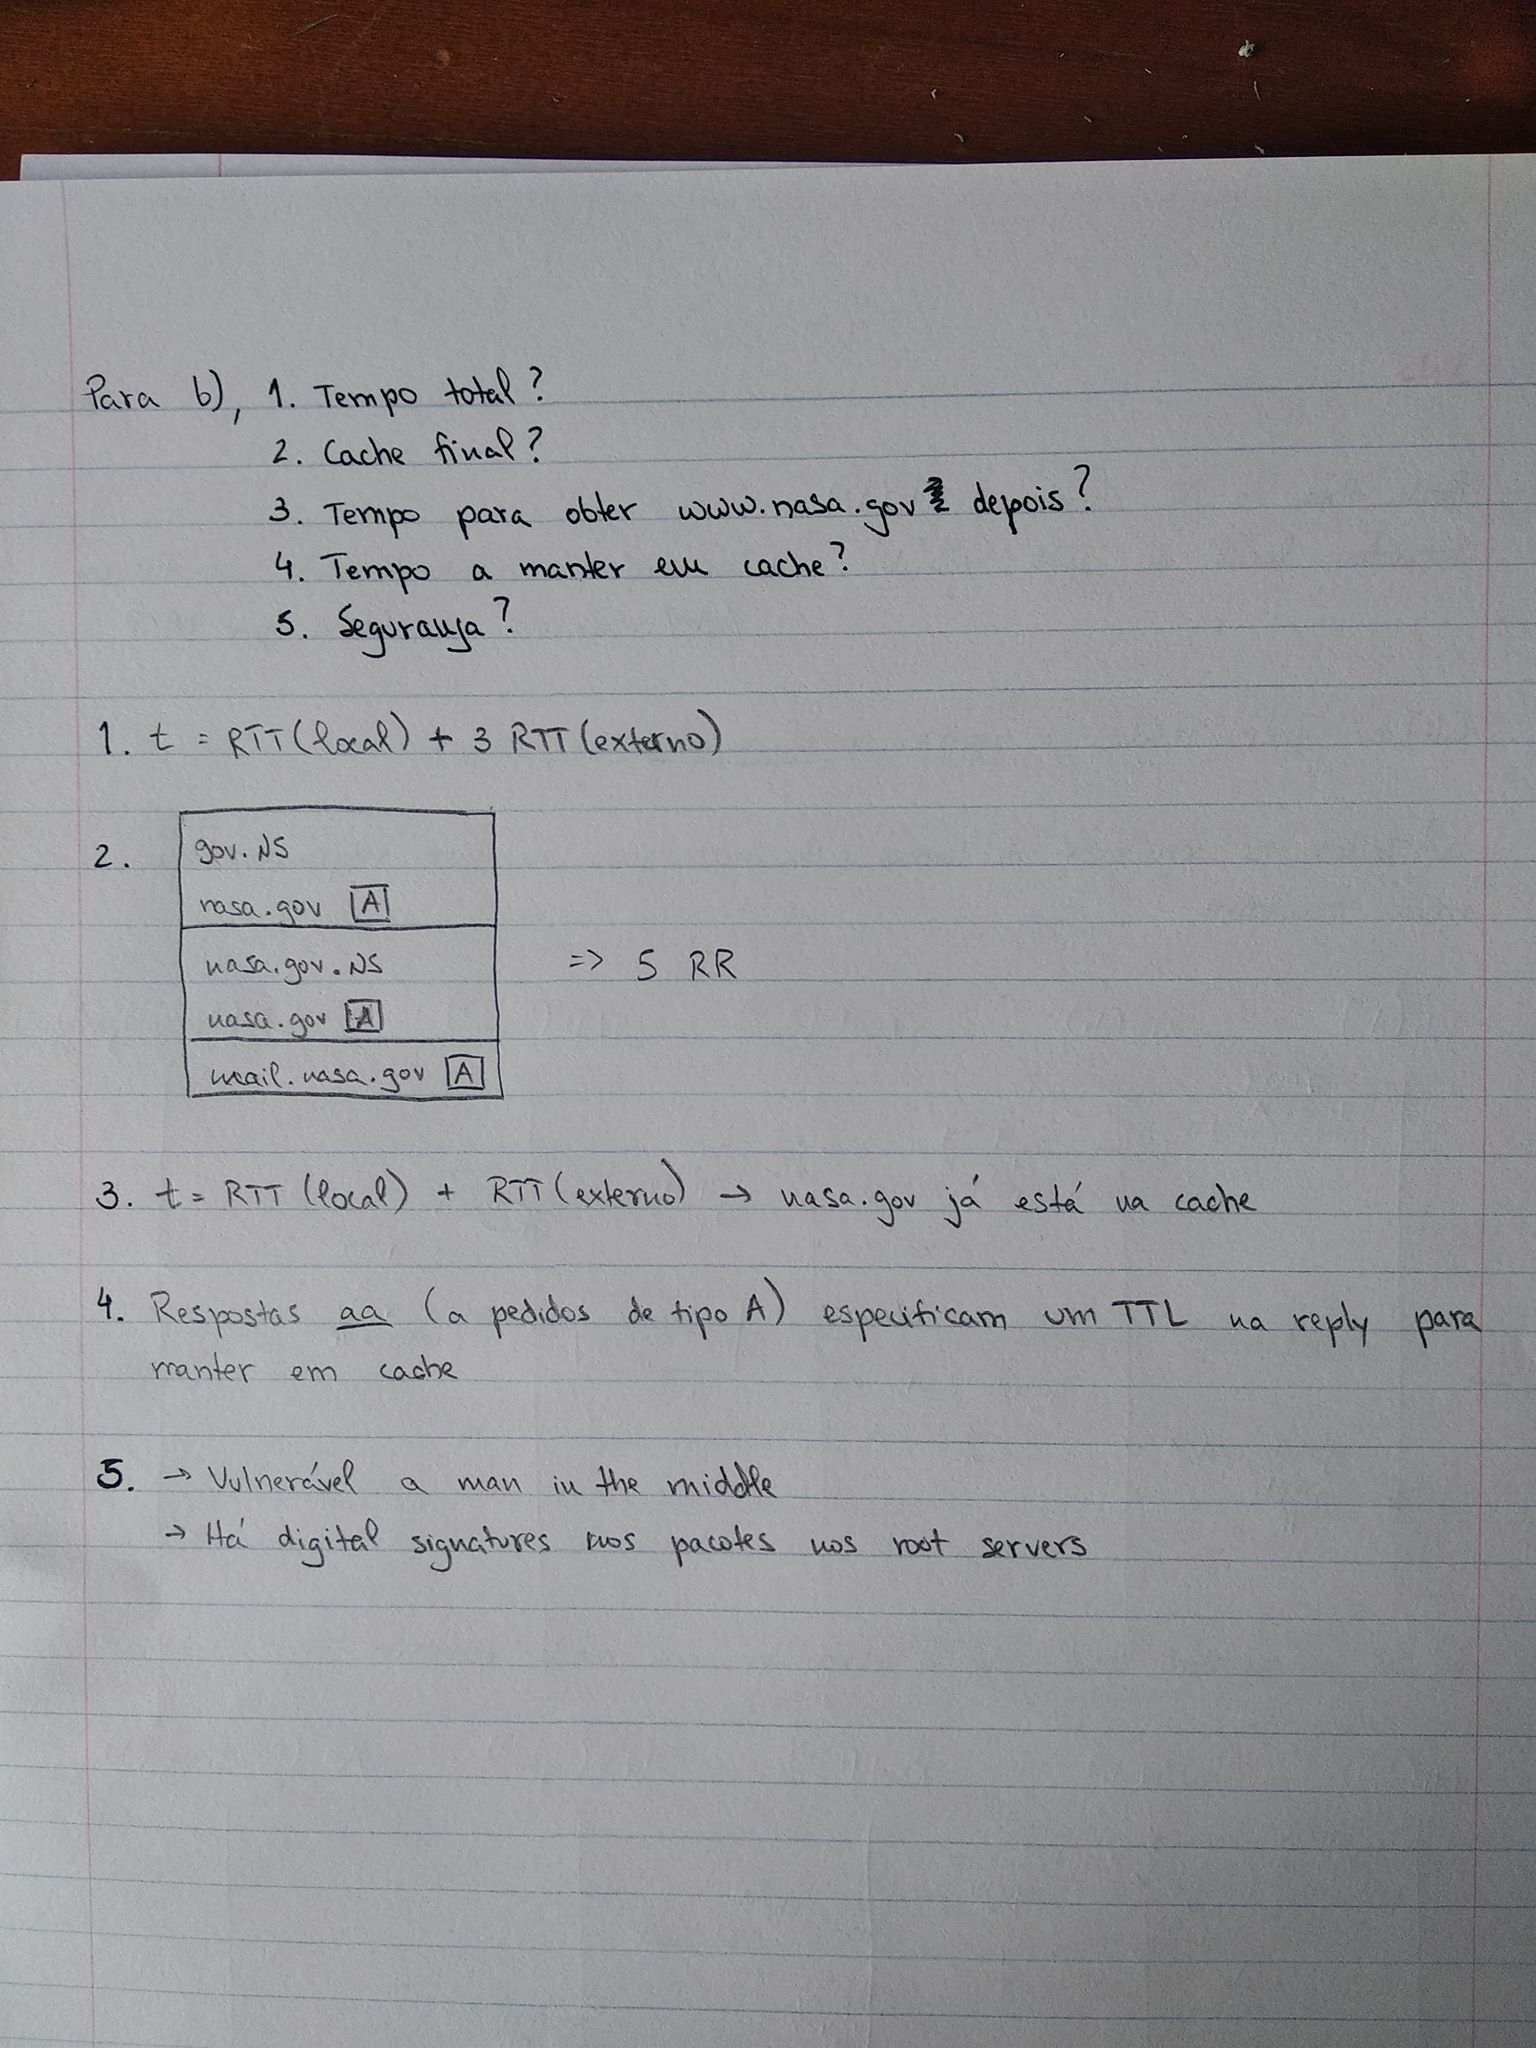 Para b), 1. Tempo total?
2. Cache final?
3. Tempo para obter www.nasa.gov depois?
4. Tempo a manter em cache?
5. Segurança?
1. t = RTT (local) + 3 RTT (externo)
2. gov. NS
nasa.gov A
nasa.gov. NS
=> 5 RR
nasa.gov A
mail.nasa.gov A
3. t = RTT (local) + RTT (externo) → nasa.gov já está na cache
4. Respostas aa (a pedidos de tipo A) especificam um TTL na reply para
manter em cache
5. → Vulnerável a man in the middle
→ Há digital signatures nos pacotes nos root servers